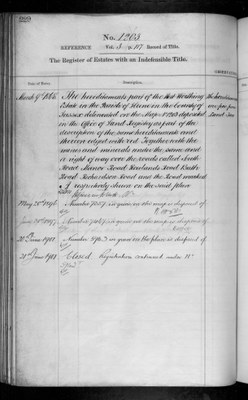 No. 1263
REFERENCE Vol. 3 p. 117 Record of Title.
The Register of Estates with an Indefeasible Title.
Date of Entry. Description.
March 9th 1866 The hereditaments part of the West Worthing
Estate in the Parish of Heene in the County of
Sussex delineated on the Map No 1263 deposited
in the Office of Land Registry as part of the
description of the same hereditaments and
thereon edged with red Together with the
mines and minerals under the same and
a right of way over the roads called South
Road Manor Road Rowlands Road Bath
Road Richardson Road and the Road marked
A respectively shown on the said plan
May 20th 1896 Number 7057 in green on the map is disposed of
June 1897 Number in green on the map is disposed of
21st June 1901 Number 3963 in green on the plan is disposed of
21st June 1901 Closed Registration continued under No